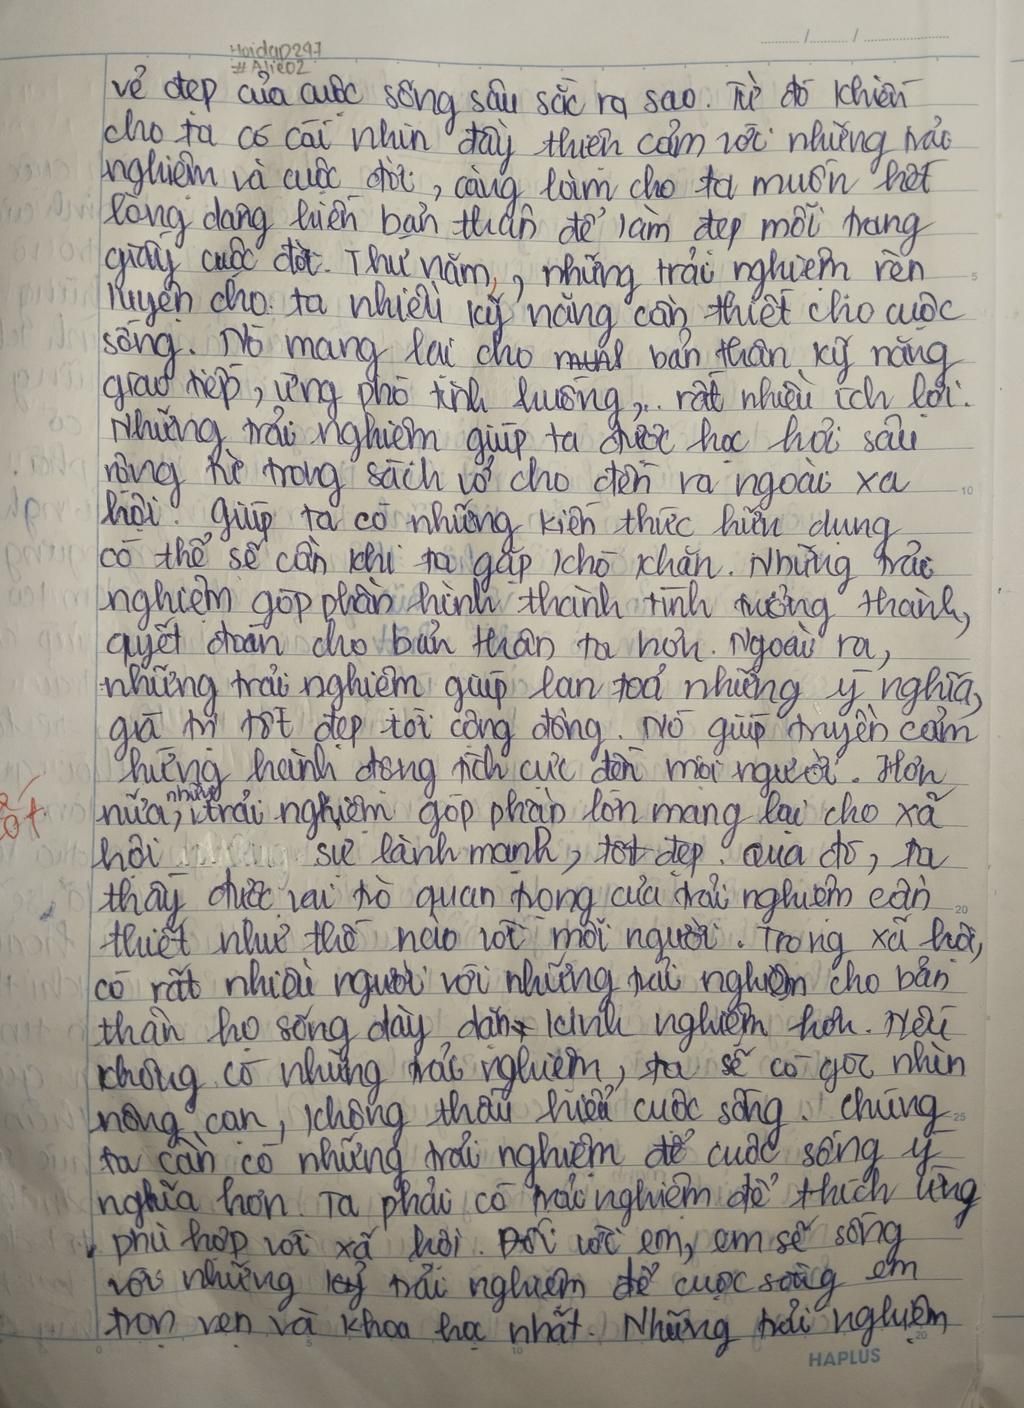 Hoidap247
#Alie02
vẻ đẹp của cuộc sống sâu sắc ra sao. Từ đó khiến
cho ta có cái nhìn đầy thiện cảm với những trải
nghiệm và cuộc đời, càng làm cho ta muốn hết
lòng dâng hiến bản thân để làm đẹp mỗi trang
giấy cuộc đời. Thứ năm, những trải nghiệm rèn
luyện cho ta nhiều kỹ năng cần thiết cho cuộc
sống. Nó mang lại cho bản thân kỹ năng
giao tiếp, ứng phó tình huống,.. rất nhiều ích lợi.
Những trải nghiệm giúp ta được học hỏi sâu
rộng từ trong sách vở cho đến ra ngoài xa
hội. Giúp ta có những kiến thức hữu dụng
có thể sẽ cần khi ta gặp khó khăn. Những trải
nghiệm góp phần hình thành tính trưởng thành,
quyết đoán cho bản thân ta hơn. Ngoài ra,
những trải nghiệm giúp lan toả những ý nghĩa,
giá trị tốt đẹp tới cộng đồng. Nó giúp truyền cảm
hứng hành động tích cực đến mọi người. Hơn
nữa, những trải nghiệm góp phần lớn mang lại cho xã
hội sự lành mạnh, tốt đẹp. Qua đó, ta
thấy được vai trò quan trọng của trải nghiệm cần
thiết như thế nào với mỗi người. Trong xã hội,
có rất nhiều người với những trải nghiệm cho bản
thân họ sống dày dặn kinh nghiệm hơn. Nếu
không có những trải nghiệm, ta sẽ có góc nhìn
nông cạn, không thấu hiểu cuộc sống. Chúng
ta cần có những trải nghiệm để cuộc sống ý
nghĩa hơn. Ta phải có trải nghiệm để thích ứng
phù hợp với xã hội. Đối với em, em sẽ sống
với những trải nghiệm để cuộc sống em
trọn vẹn và khoa học nhất. Những trải nghiệm
HAPLUS